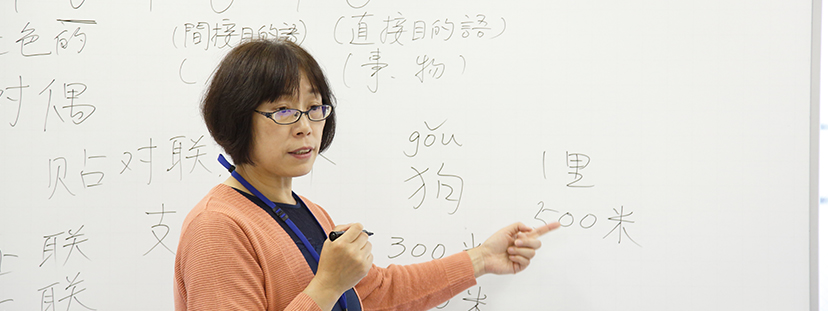 色的
(間接目的語) (直接目的語)
( (事、物)
对偶
贴对联
gǒu
狗
1里
500米
支
300米
联
联
米